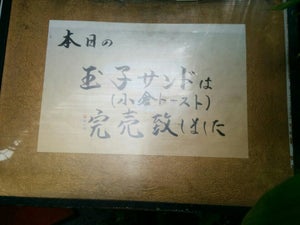 本日の
玉子サンドは
(小倉トースト)
完売致しました